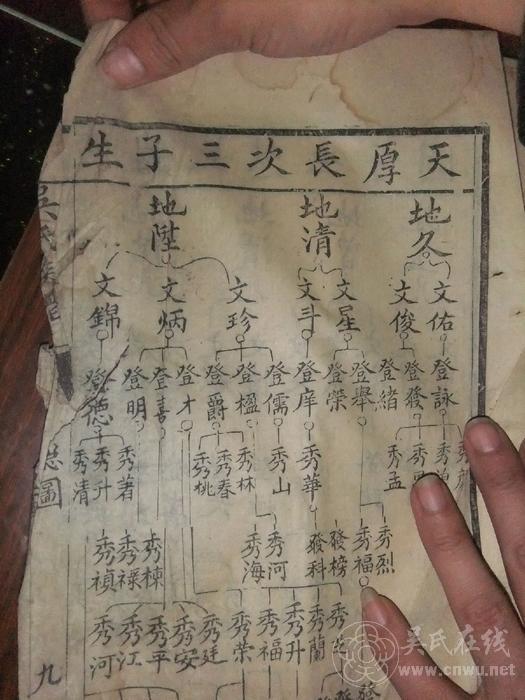 天厚長次三子生
地久 地清 地陞
文佑 文俊 文星 文斗 文珍 文炳 文錦
登詠 登發 登緒 登舉 登榮 登庠 登儒 登楹 登爵 登才 登喜 登明 登德
秀孟 秀華 秀山 秀林 秀春 秀桃 秀著 秀升 秀清
秀烈 秀福 發榜 發科 秀河 秀海 秀棟 秀祿 秀禎
秀蘭 秀升 秀福 秀荣 秀廷 秀安 秀平 秀江 秀河
吴氏族譜
總圖
九
吴氏在线
www.cnwu.net